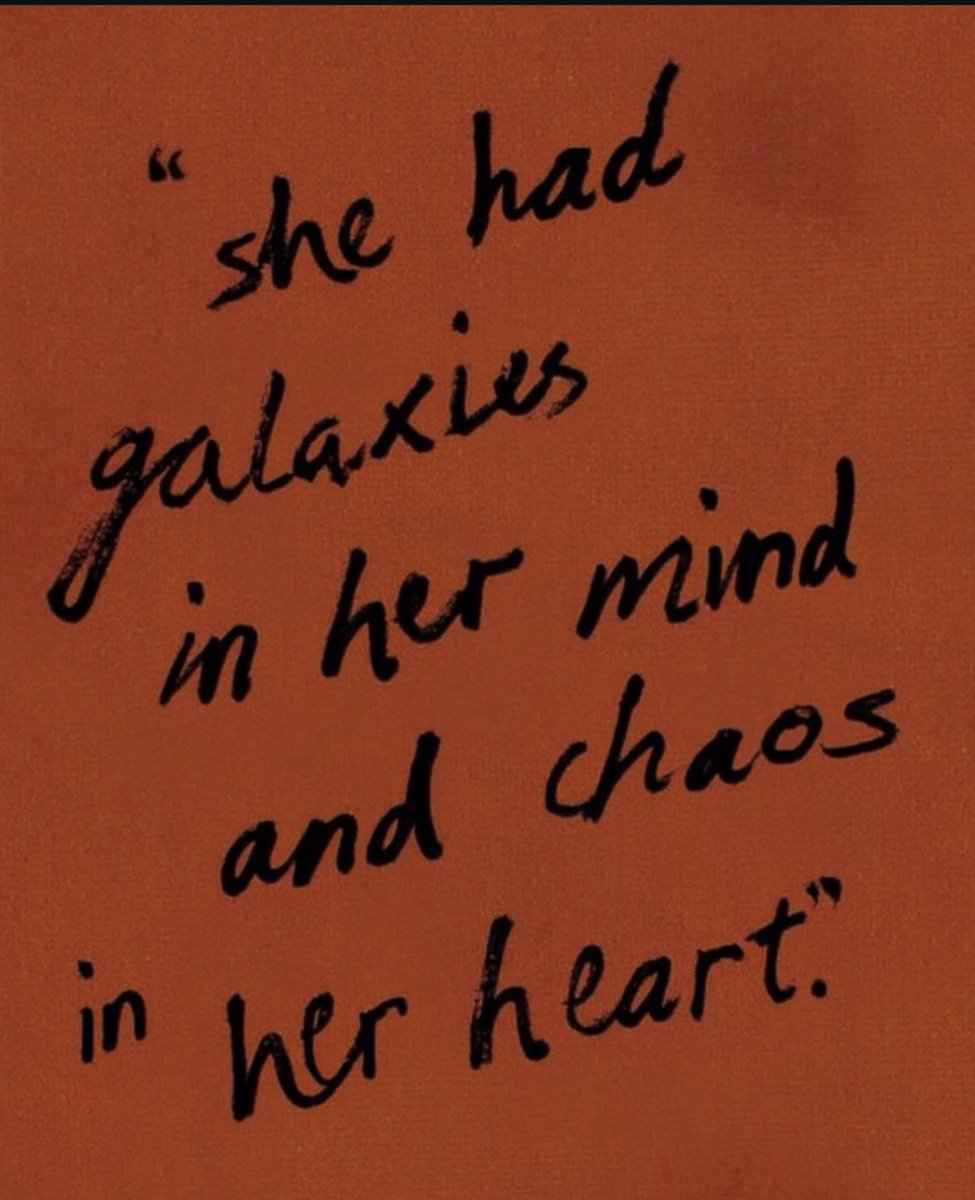 “she had
galaxies
in her mind
and chaos
in her heart.”